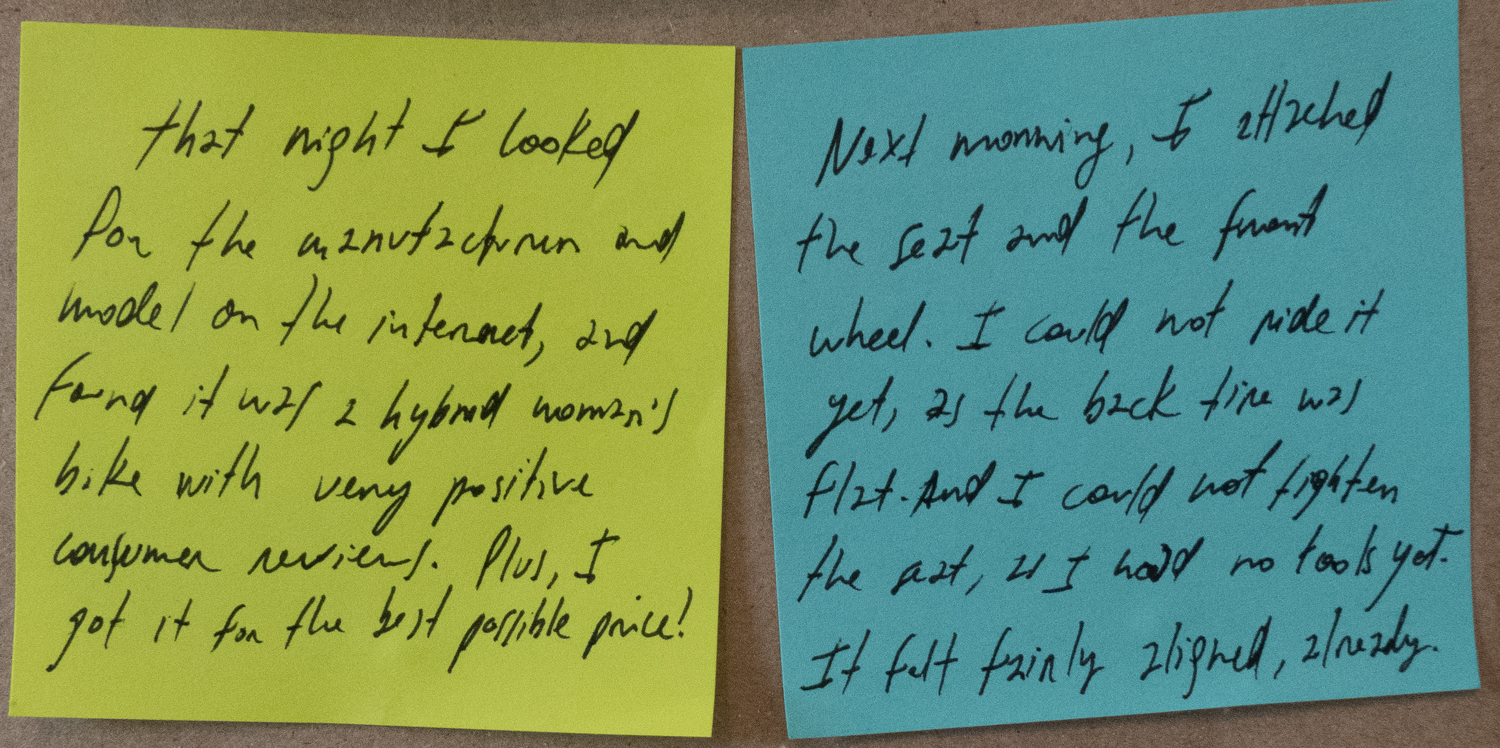 that night I looked
for the manufacturer and
model on the internet, and
found it was a hybrid woman's
bike with very positive
consumer reviews. Plus, I
got it for the best possible price!
Next morning, I attached
the seat and the front
wheel. I could not ride it
yet, as the back tire was
flat. And I could not tighten
the seat, as I had no tools yet.
It felt fairly aligned, already.